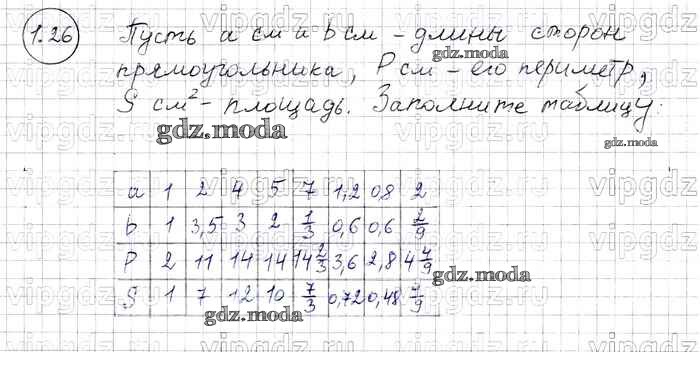 1.26 Пусть a см и b см - длины сторон
прямоугольника, P см - его периметр,
S см² - площадь. Заполните таблицу:
gdz.moda
gdz.moda
gdz.moda
a 1 2 4 5 7 1,2 0,8 2
b 1 3,5 3 2 1/3 0,6 0,6 2/9
P 2 11 14 14 14 2/3 3,6 2,8 4 4/9
S 1 7 12 10 7/3 0,72 0,48 4/9
gdz.moda
gdz.moda
vipgdz.ru